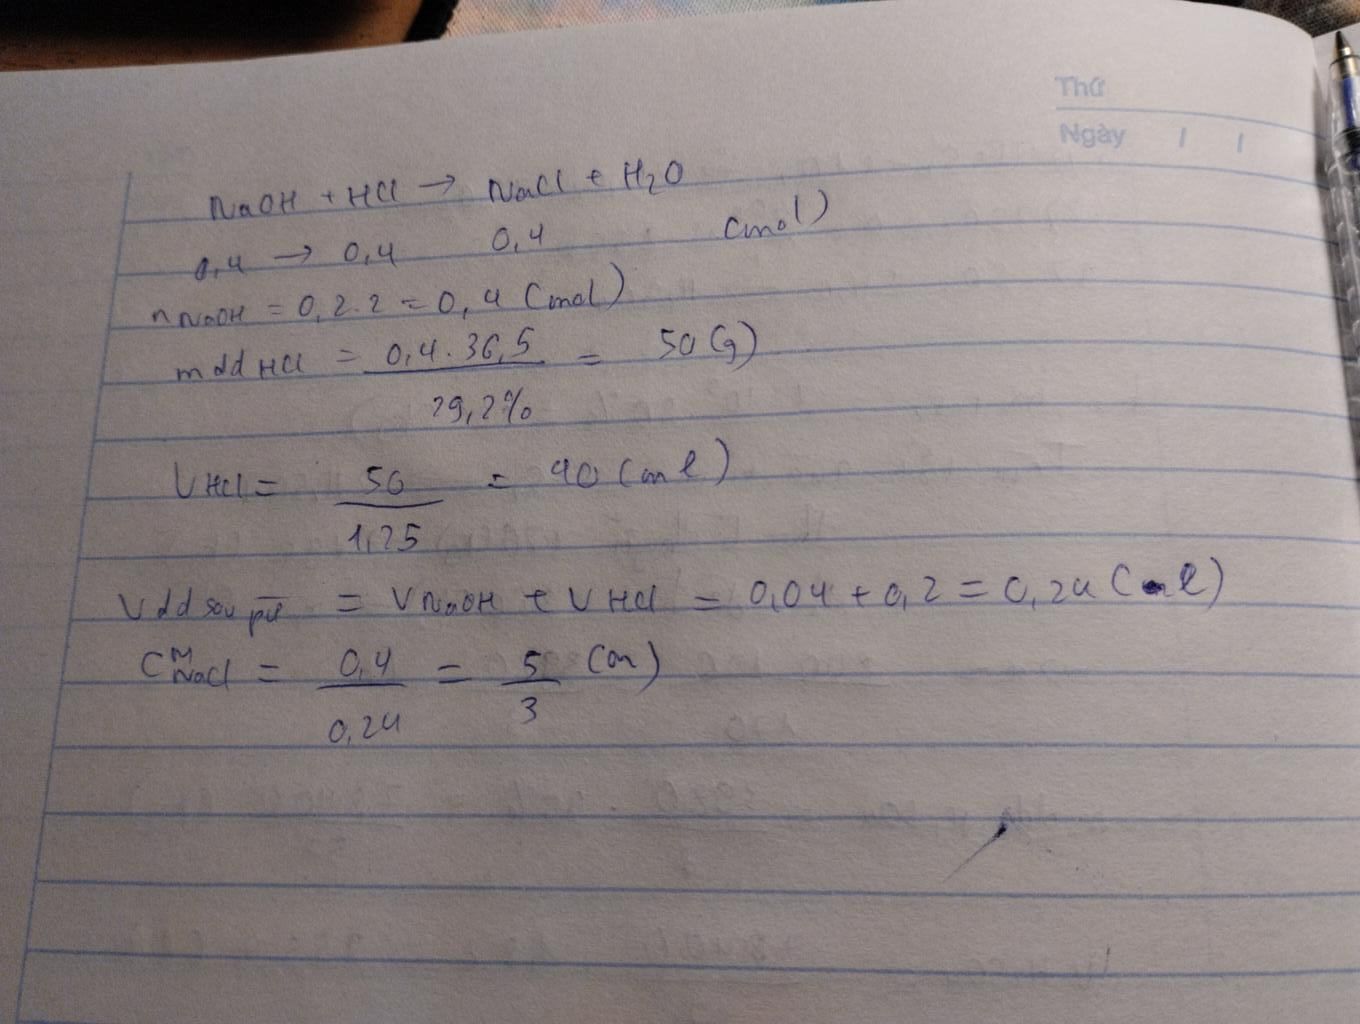 Thứ
Ngày / /
NaOH + HCl → NaCl + H₂O
0,4 → 0,4 0,4 (mol)
nNaOH = 0,2.2 = 0,4 (mol)
mddHCl = 0,4.36,5 / 29,2% = 50 (g)
VHCl = 50 / 1,25 = 40 (ml)
Vdd sau pứ = VNaOH + VHCl = 0,04 + 0,2 = 0,24 (l)
CMNaCl = 0,4 / 0,24 = 5 / 3 (M)